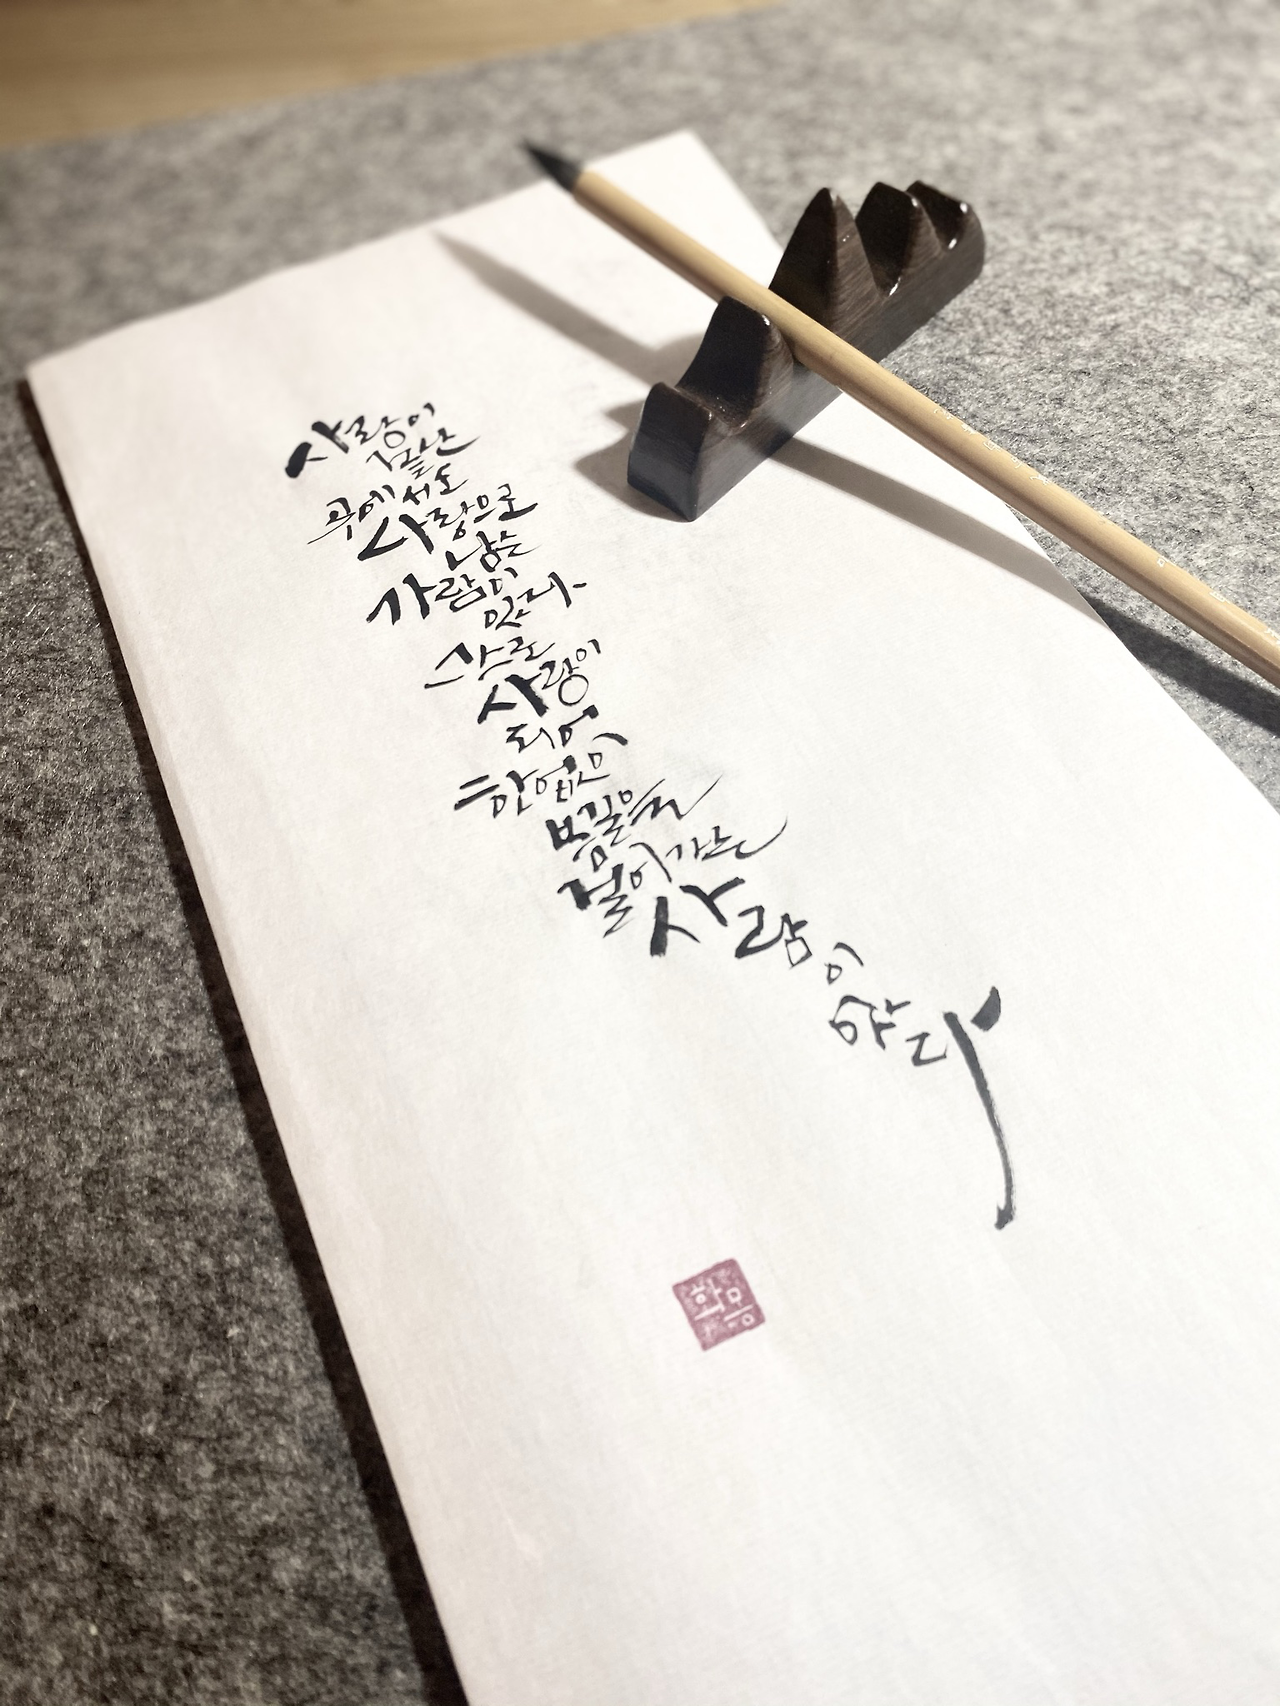 사랑이
끝난
곳에서도
사랑으로
남는
사람이
있다.
스스로
사랑이
되어
한없이
봄길을
걸어가는
사람이
있다